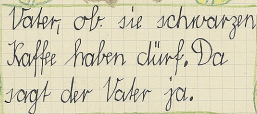 Vater, ob sie schwarzen
Kaffee haben dürf. Da
sagt der Vater ja.